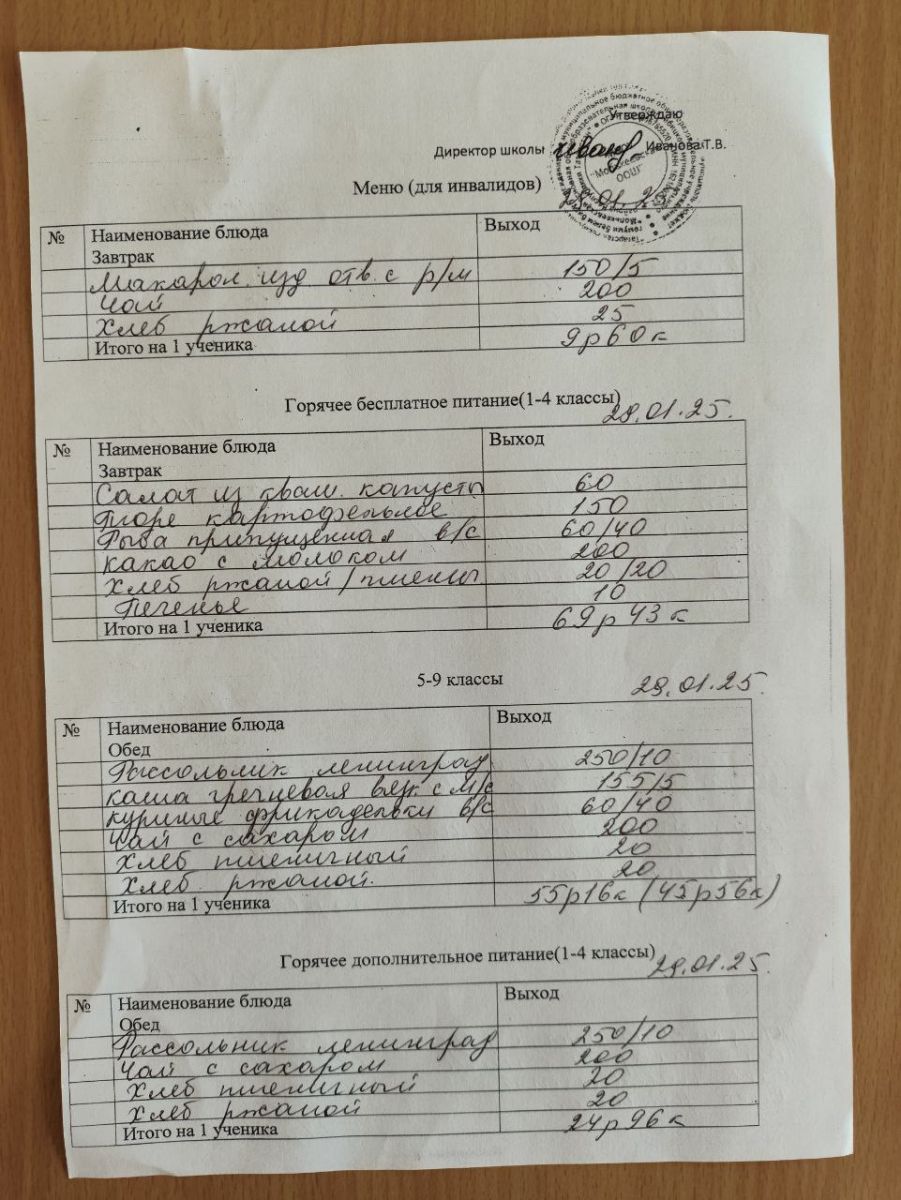 Утверждаю
Директор школы Иванова Т.В.
Меню (для инвалидов)
№ Наименование блюда Выход
Завтрак
Макарон. изд отв. с р/м 150/5
Чай 200
Хлеб ржаной 25
Итого на 1 ученика 9р60к
Горячее бесплатное питание(1-4 классы) 29.01.25.
№ Наименование блюда Выход
Завтрак
Салат из кваш. капусты 60
Пюре картофельное 150
Рыба припущенная в/с 60/40
какао с молоком 200
Хлеб ржаной/пшенич 20/20
Печенье 10
Итого на 1 ученика 69р43к
5-9 классы 29.01.25.
№ Наименование блюда Выход
Обед
Рассольник ленинград 250/10
каша гречневая вязк с м/с 155/5
куриные фрикадельки в/с 60/40
Чай с сахаром 200
Хлеб пшеничный 20
Хлеб ржаной. 20
Итого на 1 ученика 55р16к (45р56к)
Горячее дополнительное питание(1-4 классы) 29.01.25.
№ Наименование блюда Выход
Обед
Рассольник ленинград 250/10
Чай с сахаром 200
Хлеб пшеничный 20
Хлеб ржаной 20
Итого на 1 ученика 24р96к